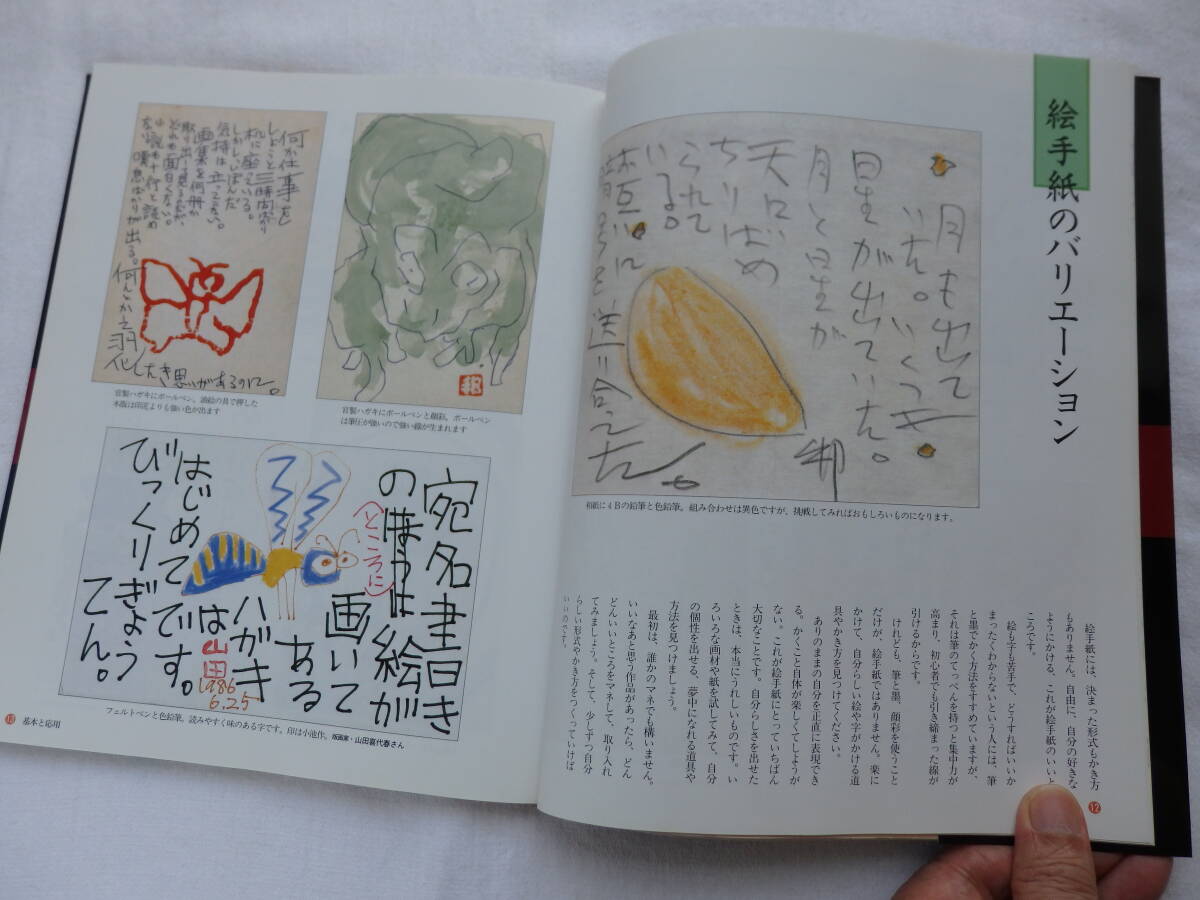 絵手紙のバリエーション
月も出て
いた。いくつき
星が出ていた。
月と星が
天にば
ちりばめ
られて
いる。
邦
和紙に4Bの鉛筆と色鉛筆。組み合わせは異色ですが、挑戦してみればおもしろいものになります。
絵手紙には、決まった形式もかき方
もありません。自由に、自分の好きな
ようにかける、これが絵手紙のいいと
ころです。
絵も字も苦手で、どうすればいいか
まったくわからないという人には、筆
と墨でかく方法をすすめていますが、
それは筆のてっぺんを持つと集中力が
高まり、初心者でも引き締まった線が
引けるからです。
けれども、筆と墨、顔彩を使うこと
だけが、絵手紙ではありません。楽に
かけて、自分らしい絵や字がかける道
具やかき方を見つけてください。
ありのままの自分を正直に表現でき
る。かくこと自体が楽しくてしようが
ない。これが絵手紙にとっていちばん
大切なことです。自分らしさを出せた
ときは、本当にうれしいものです。い
ろいろな画材や紙を試してみて、自分
の個性を出せる、夢中になれる道具や
方法を見つけましょう。
最初は、誰かのマネでも構いません。
いいなあと思う作品があったら、どん
どんいいところをマネして、取り入れ
てみましょう。そして、少しずつ自分
らしい形式やかき方をつくっていけば
いいのです。
12
何か仕事を
しようと三時間余り
机に座っている。
しかしいじばんだ
気持は立ってこない。
画集を何冊か
取り出して見るのだが、
どれも面白くない。
小説も十行と読め
ない 嘆息ばかりが出る。何とか之羽化したき思いがあるのに。
官製ハガキにボールペン。油絵の具で押した
木版は印泥よりも強い色が出ます
邦
官製ハガキにボールペンと顔彩。ボールペン
は筆圧が強いので強い線が生まれます
宛名書き
のほうに絵が
(ところに)
画いて
ある
ハガキ
は
はじめてです。
びっくりぎょう
てん。
山田
1986
6.25
フェルトペンと色鉛筆。読みやすく味のある字です。印は小池作。版画家・山田喜代春さん
13 基本と応用